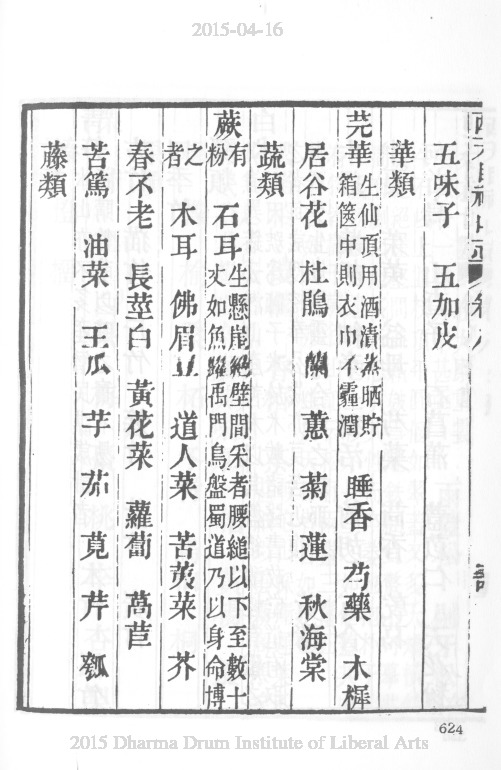 2015-04-16
五味子 五加皮
華類
芫華 生仙頂用酒漬蒸晒貯箱篋中則衣巾不霾潤 睡香 芍藥 木樨
居谷花 杜鵑 蘭 蕙 菊 蓮 秋海棠
蔬類
蕨 有粉 石耳 生懸崖絕壁間采者腰縋以下至數十丈如魚鱺禹門鳥盤蜀道乃以身命博
之者 木耳 佛眉 道人菜 苦荬菜 芥
春不老 長莖白 黃花菜 蘿蔔 萵苣
苦篤 油菜 王瓜 芋 茄 莧 芹 瓠
藤類
624
2015 Dharma Drum Institute of Liberal Arts